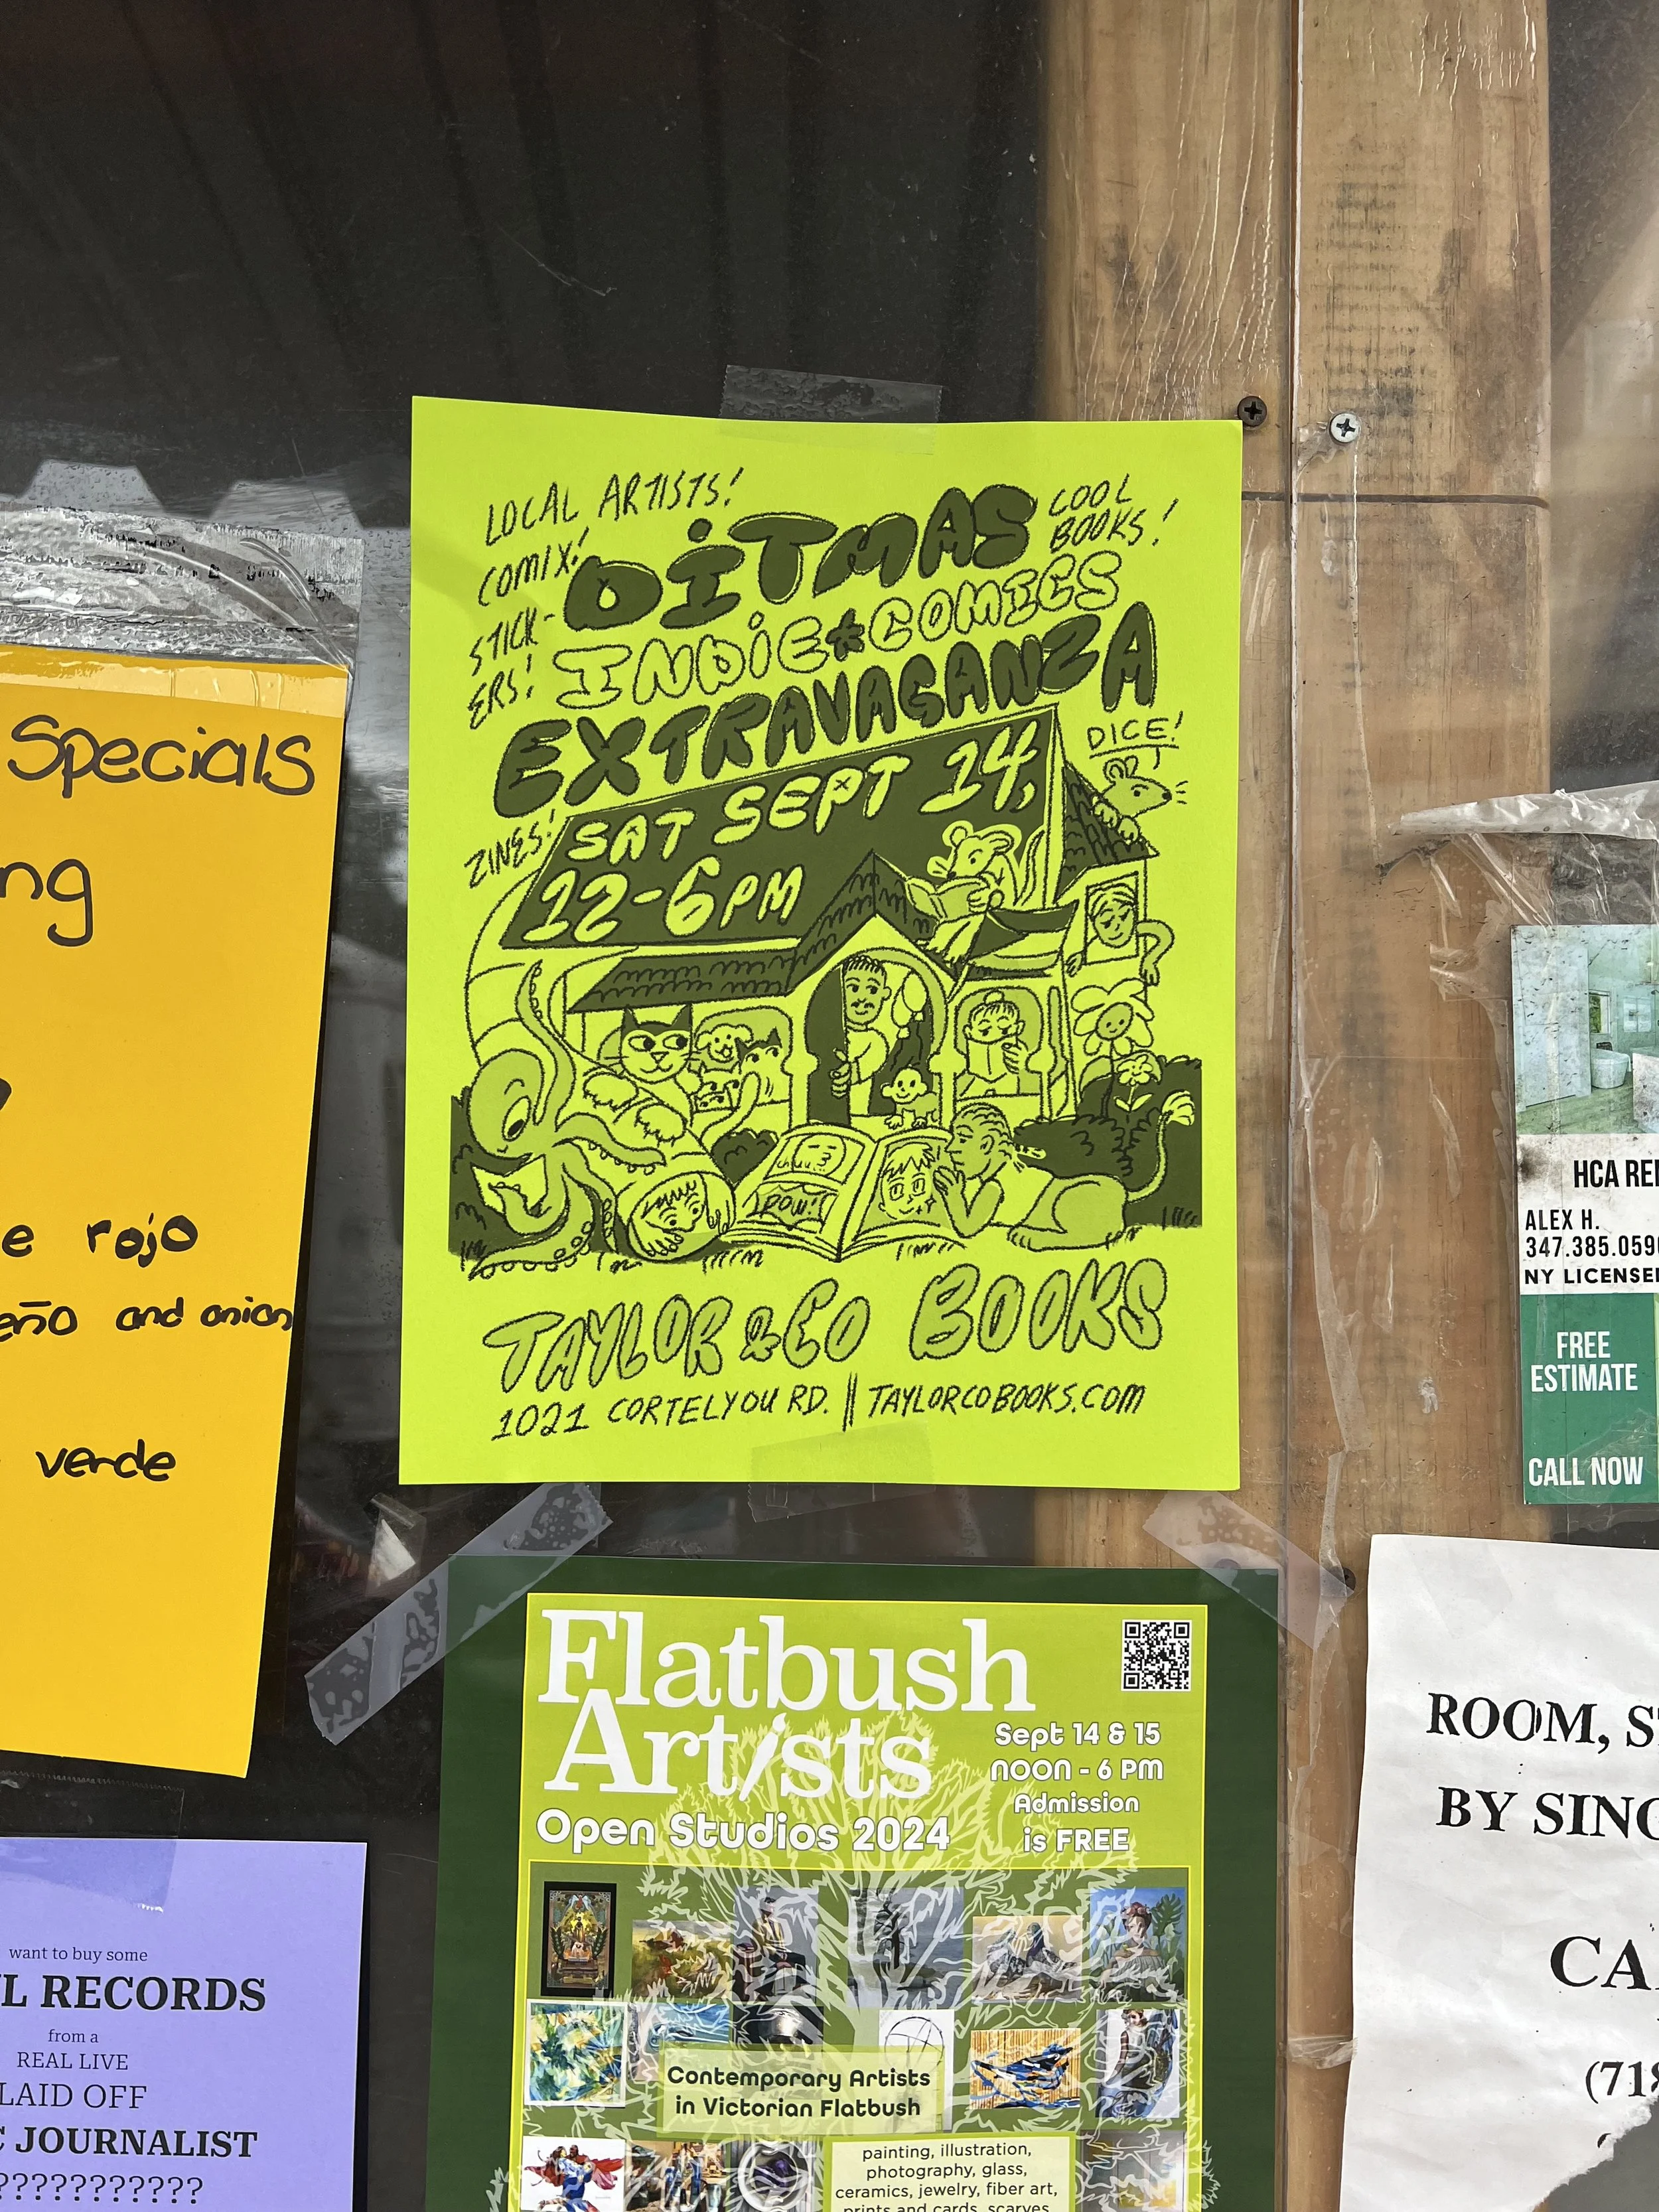 LOCAL ARTISTS!
COOL
BOOKS!
COMIX!
STICK-
ERS!
DITMAS
INDIE★COMICS
EXTRAVAGANZA
DICE!
ZINES!
SAT SEPT 14,
12-6PM
POW!
TAYLOR & CO BOOKS
1021 CORTELYOU RD. || TAYLORCOBOOKS.COM
Specials
ng
e rojo
eño and onion
verde
Flatbush
Artists
Open Studios 2024
Sept 14 & 15
NOON - 6 PM
Admission
is FREE
Contemporary Artists
in Victorian Flatbush
painting, illustration,
photography, glass,
ceramics, jewelry, fiber art,
prints and cards, scarves
want to buy some
L RECORDS
from a
REAL LIVE
LAID OFF
C JOURNALIST
???????????
HCA RE
ALEX H.
347.385.059
NY LICENSE
FREE
ESTIMATE
CALL NOW
ROOM, S
BY SING
CA
(718